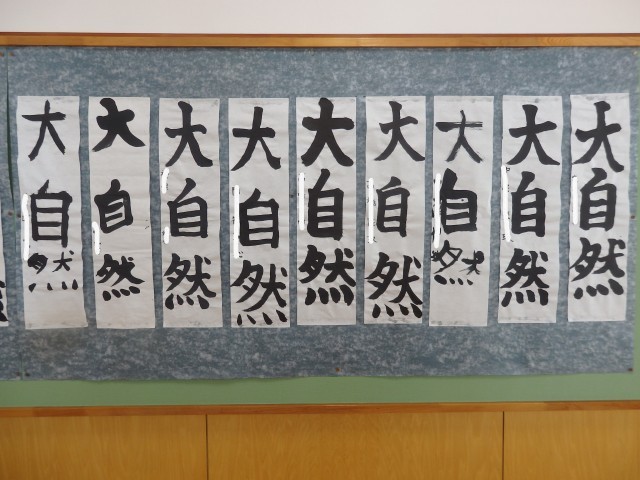 大自然
大自然
大自然
大自然
大自然
大自然
大自然
大自然
大自然